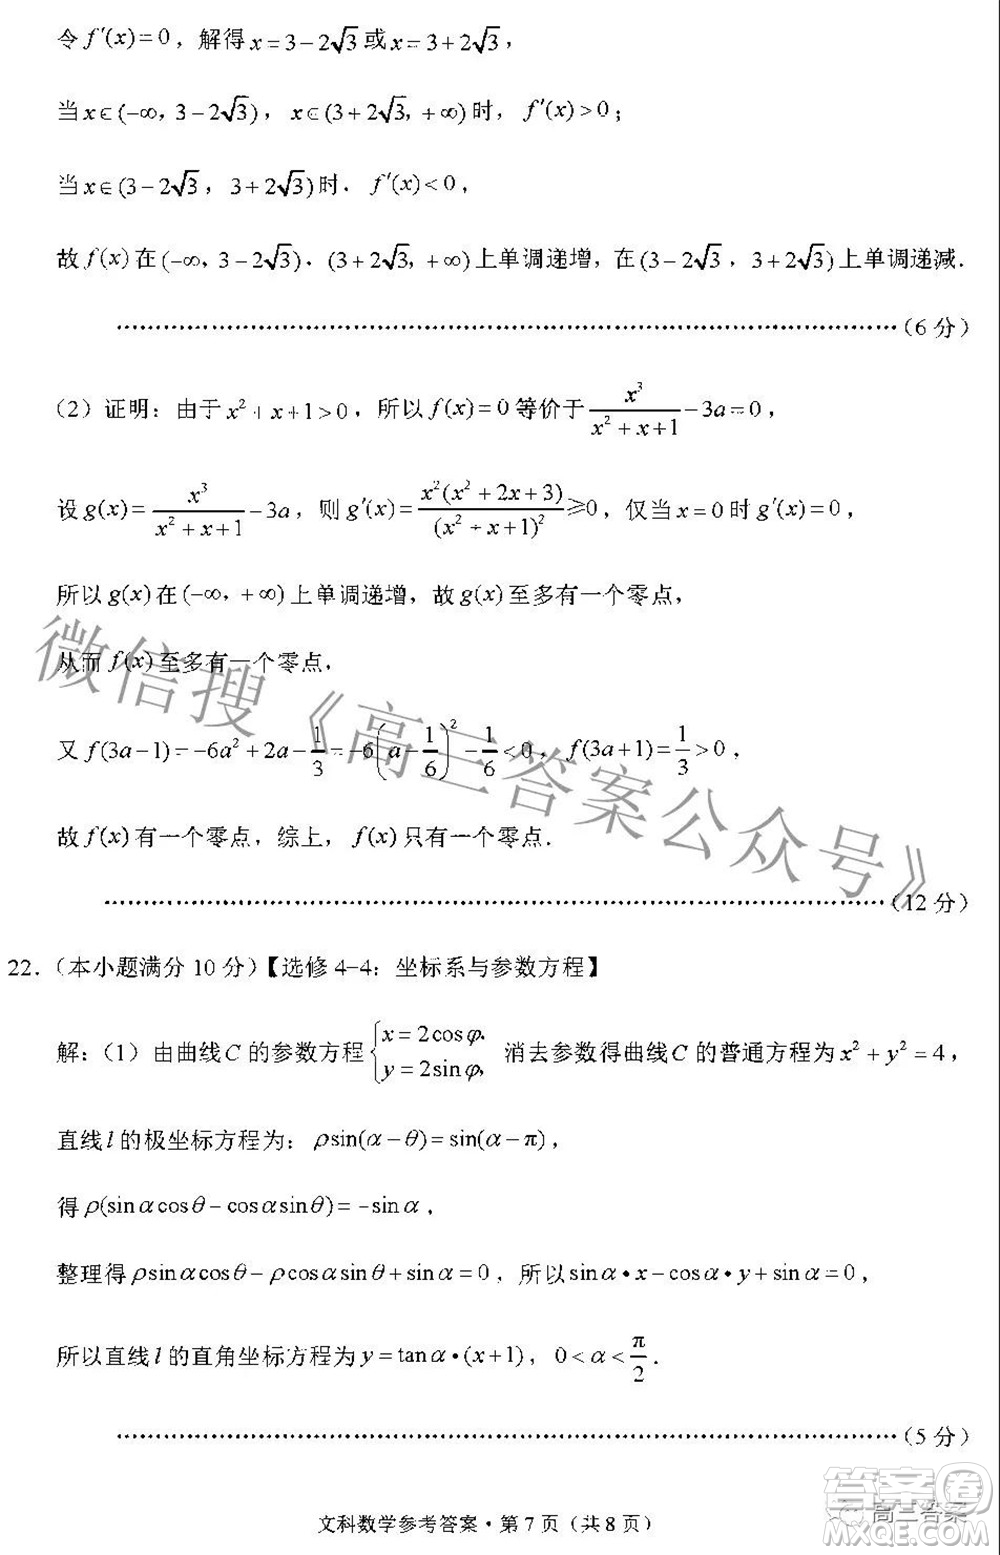 令 f′(x)=0，解得 x=3−2√3 或 x=3+2√3，
当 x∈(−∞，3−2√3)，x∈(3+2√3，+∞) 时，f′(x)>0；
当 x∈(3−2√3，3+2√3) 时．f′(x)<0，
故 f(x) 在 (−∞，3−2√3)．(3+2√3，+∞) 上单调递增，在 (3−2√3，3+2√3) 上单调递减．
（6 分）
（2）证明：由于 x²+x+1>0，所以 f(x)=0 等价于 x³/(x²+x+1)−3a=0，
设 g(x)=x³/(x²+x+1)−3a，则 g′(x)=x²(x²+2x+3)/(x²+x+1)²≥0，仅当 x=0 时 g′(x)=0，
所以 g(x) 在 (−∞，+∞) 上单调递增，故 g(x) 至多有一个零点，
从而 f(x) 至多有一个零点．
又 f(3a−1)=−6a²+2a−1/3=−6(a−1/6)²−1/6<0，f(3a+1)=1/3>0，
故 f(x) 有一个零点，综上，f(x) 只有一个零点．
（12 分）
22．（本小题满分 10 分）【选修 4−4：坐标系与参数方程】
解：（1）由曲线 C 的参数方程 {x=2cosφ， y=2sinφ， 消去参数得曲线 C 的普通方程为 x²+y²=4，
直线 l 的极坐标方程为：ρsin(α−θ)=sin(α−π)，
得 ρ(sinαcosθ−cosαsinθ)=−sinα．
整理得 ρsinαcosθ−ρcosαsinθ+sinα=0，所以 sinα•x−cosα•y+sinα=0，
所以直线 l 的直角坐标方程为 y=tanα•(x+1)，0<α<π/2．
（5 分）
文科数学参考答案·第 7 页（共 8 页）
微信搜《高三答案公众号》
答案圈
高三答案
MXQE.COM